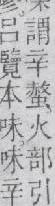 謂辛螫火部引
呂覽本味味辛